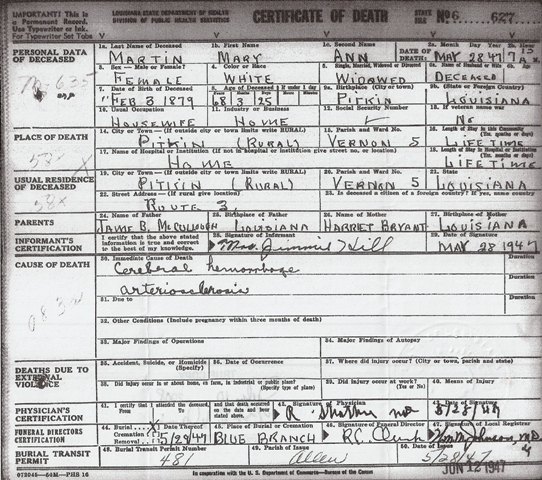 IMPORTANT! This is a Permanent Record. Use Typewriter or Ink. For Typewriter Set Tabs
LOUISIANA STATE DEPARTMENT OF HEALTH
DIVISION OF PUBLIC HEALTH STATISTICS
CERTIFICATE OF DEATH
STATE FILE No 6 627
PERSONAL DATA OF DECEASED
1a. Last Name of Deceased 1b. First Name 1c. Second Name DATE OF DEATH 2a. Month Day Year 2b. Hour
MARTIN MARY ANN MAY 28 47
3. Sex—Male or Female? 4. Color or Race 5. Single, Married, Widowed or Divorced 6a. Name of Husband or Wife
FEMALE WHITE WIDOWED DECEASED
7. Date of Birth of Deceased 8. Age of Deceased If under 1 day 9a. Birthplace (City or Town) 9b. (State or Foreign Country)
FEB 3 1879 68 3 25 PITKIN LOUISIANA
10. Usual Occupation 11. Industry or Business 12. Social Security Number 13. If veteran name war
HOUSEWIFE HOME No
PLACE OF DEATH
14. City or Town—(If outside city or town limits write RURAL) 15. Parish and Ward No. 16. Length of Stay in this Community
PITKIN (RURAL) VERNON 5 LIFETIME
17. Name of Hospital or Institution (If not in hospital or institution give street no. or location) 18. Length of Stay in Hospital or Institution
HOME LIFETIME
USUAL RESIDENCE OF DECEASED
19. City or Town—(If outside city or town limits write RURAL) 20. Parish and Ward No. 21. State
PITKIN (RURAL) VERNON 5 LOUISIANA
22. Street Address—(If rural give location) 23. Is deceased a citizen of a foreign country? If yes, name country
ROUTE 3
PARENTS
24. Name of Father 25. Birthplace of Father 26. Name of Mother 27. Birthplace of Mother
JAMIE B. McCULLOUGH LOUISIANA HARRIET BRYANT LOUISIANA
INFORMANT'S CERTIFICATION
I certify that the above stated information is true and correct to the best of my knowledge.
28. Signature of Informant 29. Date of Signature
Mrs. Jimmie Hill MAY 28 1947
CAUSE OF DEATH
30. Immediate Cause of Death Duration
Cerebral hemorrhage
arteriosclerosis
31. Due to Duration
32. Other Conditions (Include pregnancy within three months of death)
33. Major Findings of Operations 34. Major Findings of Autopsy
DEATHS DUE TO EXTERNAL VIOLENCE
35. Accident, Suicide, or Homicide (Specify) 36. Date of Occurrence 37. Where did injury occur? (City or town, parish and state)
38. Did injury occur in or about home, on farm, in industrial or public place? (Specify type of place) 39. Did injury occur at work? (Yes or No) 40. Means of Injury
PHYSICIAN'S CERTIFICATION
41. I certify that I attended the deceased and that death occurred on the date and hour stated above. 42. Signature Physician 43. Date of Signature
FUNERAL DIRECTORS CERTIFICATION
44. Burial Cremation Removal Date Thereof 45. Place of Burial or Cremation 46. Signature of Funeral Director 47. Signature of Local Registrar
X 5/28/47 BLUE BRANCH
BURIAL TRANSIT PERMIT
48. Burial Transit Permit Number 49. Parish of Issue 50. Date of Issue
481 Allen 5/28/47
JUN 12 1947
072045—64M—PHS 16 In cooperation with the U. S. Department of Commerce—Bureau of the Census